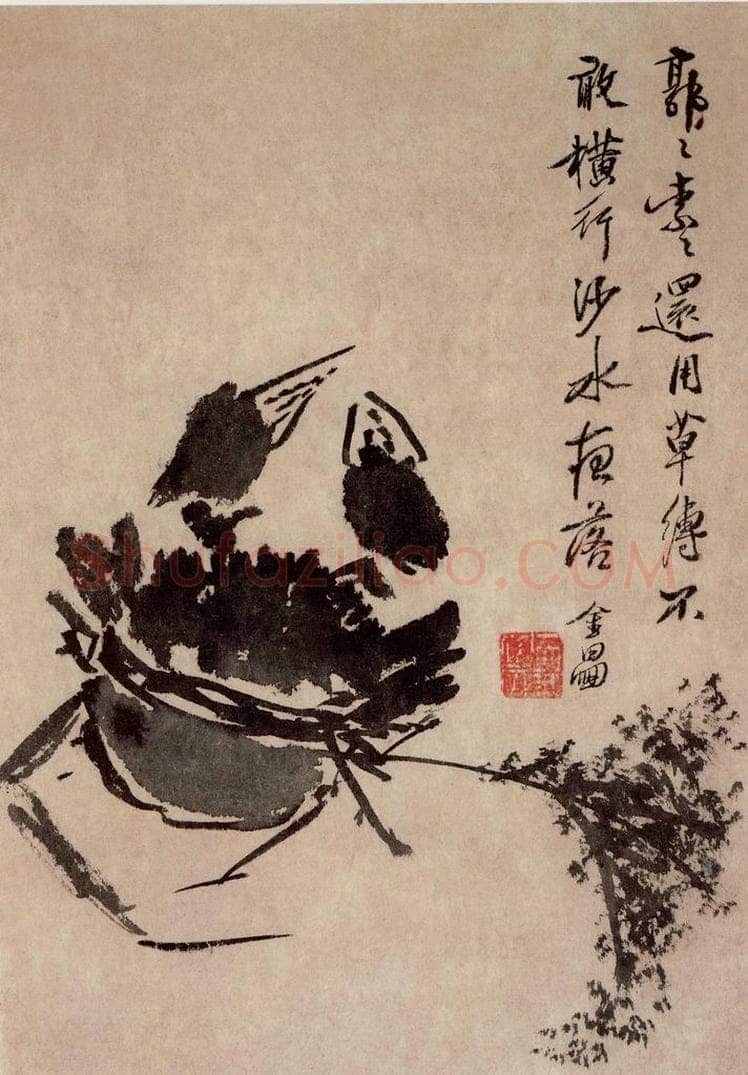 郭〻索〻還用草縛不
敢橫行沙水夜落
金畾
Shufaziliao.COM